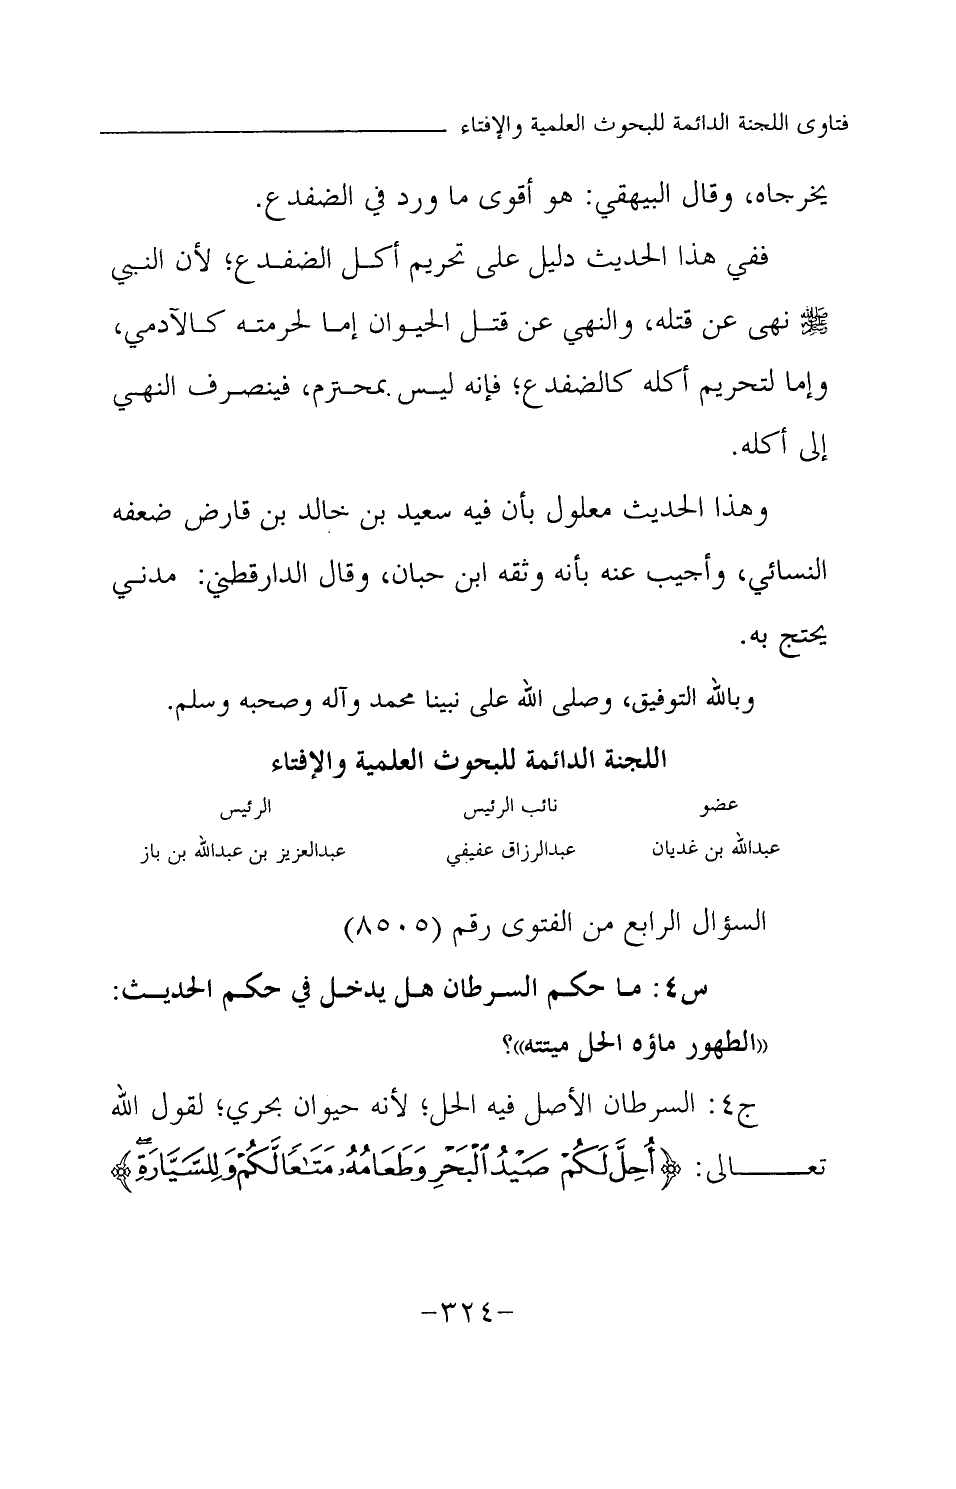 فتاوى اللجنة الدائمة للبحوث العلمية والإفتاء
يخرجاه، وقال البيهقي: هو أقوى ما ورد في الضفدع.
ففي هذا الحديث دليل على تحريم أكل الضفدع؛ لأن النبي
ﷺ نهى عن قتله، والنهي عن قتل الحيوان إما لحرمته كالآدمي،
وإما لتحريم أكله كالضفدع؛ فإنه ليس بمحترم، فينصرف النهي
إلى أكله.
وهذا الحديث معلول بأن فيه سعيد بن خالد بن قارض ضعفه
النسائي، وأجيب عنه بأنه وثقه ابن حبان، وقال الدارقطني: مدني
يحتج به.
وبالله التوفيق، وصلى الله على نبينا محمد وآله وصحبه وسلم.
اللجنة الدائمة للبحوث العلمية والإفتاء
عضو نائب الرئيس الرئيس
عبدالله بن غديان عبدالرزاق عفيفي عبدالعزيز بن عبدالله بن باز
السؤال الرابع من الفتوى رقم (٨٥٠٥)
س٤: ما حكم السرطان هل يدخل في حكم الحديث:
«الطهور ماؤه الحل ميتته»؟
ج٤: السرطان الأصل فيه الحل؛ لأنه حيوان بحري؛ لقول الله
تعالى: ﴿أُحِلَّ لَكُمْ صَيْدُ ٱلْبَحْرِ وَطَعَامُهُۥ مَتَـٰعًا لَّكُمْ وَلِلسَّيَّارَةِۖ﴾
-٣٢٤-